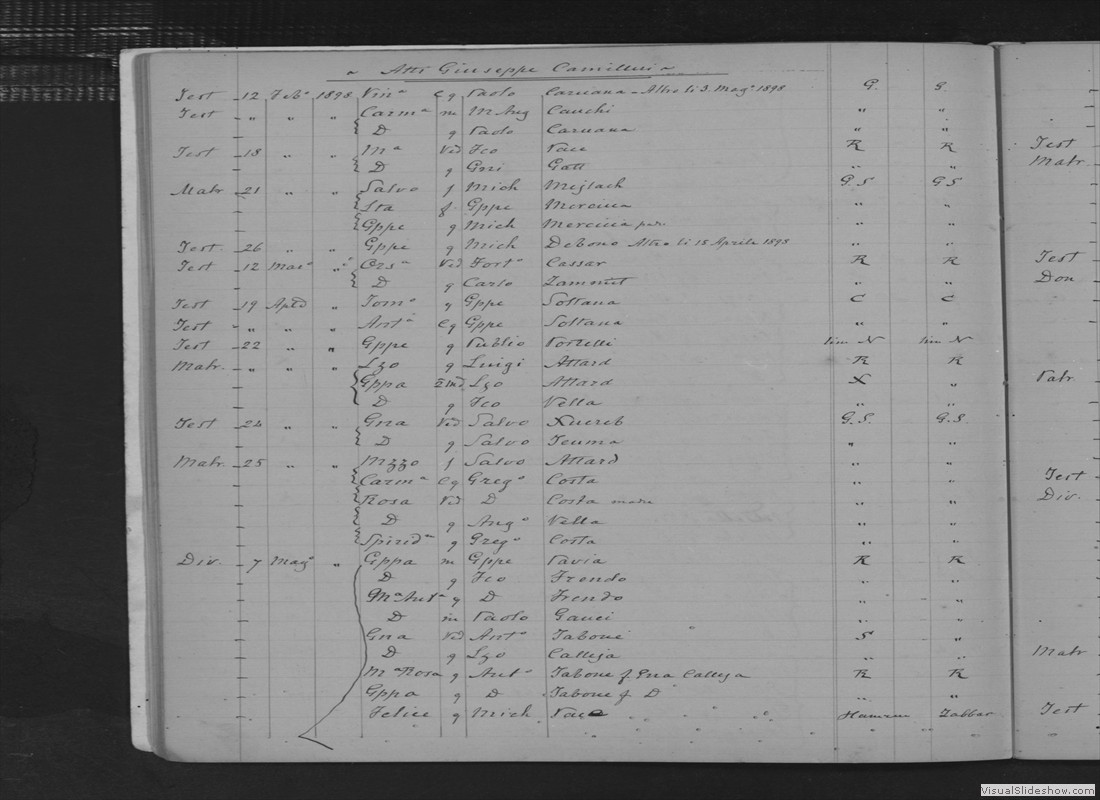 Atti Giuseppe Camilleri
Test 12 Feb° 1898 Vin^a C q Paolo Caruana - Altro li 3. Mag° 1898 G. G.
Test " " " Carm^a m M Aug Cauchi " "
D q Paolo Caruana " "
Test 18 " " M^a Ved Fco Pace R R
D q Gni Gatt " "
Matr 21 " " Salvo f Mich Mejlach G.S G S
Sta q Gppe Mercieca " "
Gppe q Mich Mercieca " "
Test. 26 " " Gppe q Mich Debono Altro li 18 Aprile 1898 " "
Test 12 Mar° " Ors^a Ved Fort° Cassar R R
D q Carlo Zammit " "
Test 19 " Tom° q Gppe Soltana C C
Test " " " Ant^a C q Gppe Soltana " "
Test 22 " " Gppe q Publio Portelli
Matr. " " " Lzo q Luigi Attard R R
Gppa Lzo Attard X "
D q Fco Vella " "
Test 24 " " Gna Ved Salvo Xuereb G.S. G.S.
D q Salvo Teuma " "
Matr. 25 " " Mzzo f Salvo Attard " "
Carm^a C q Greg° Costa " "
Rosa Ved D Costa madre " "
D q Ang° Vella " "
Spirid^a q Greg° Costa " "
Div. 7 Mag° " Gppa m Gppe Pavia R R
D q Fco Frendo " "
M^a Ant^a q D Frendo " "
D m Paolo Gauci " "
Gna Ved Ant° Tabone S "
D q Lzo Calleja " "
M^a Rosa q Ant° Tabone f Gna Calleja R R
Gppa q D Tabone f D " "
Felice q Mich Pace Hamrun Zabbar
Test
Matr.
Test
Don
Test
Div.
Matr
Test
VisualSlideshow.com